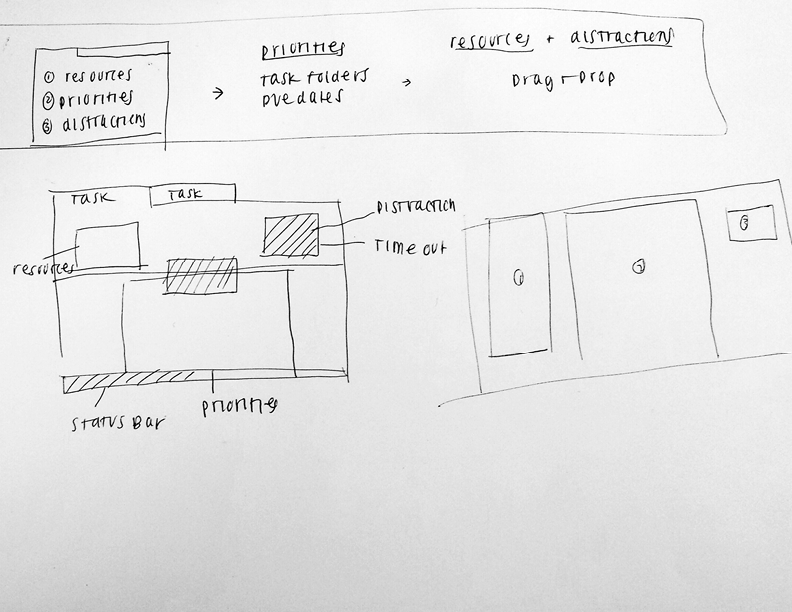 ① resources
② priorities
③ distractions
→
priorities
Task folders
Due dates
→
resources + distractions
Drag + Drop
Task
Task
Distraction
Time out
resources
Status Bar
priorities
①
②
③